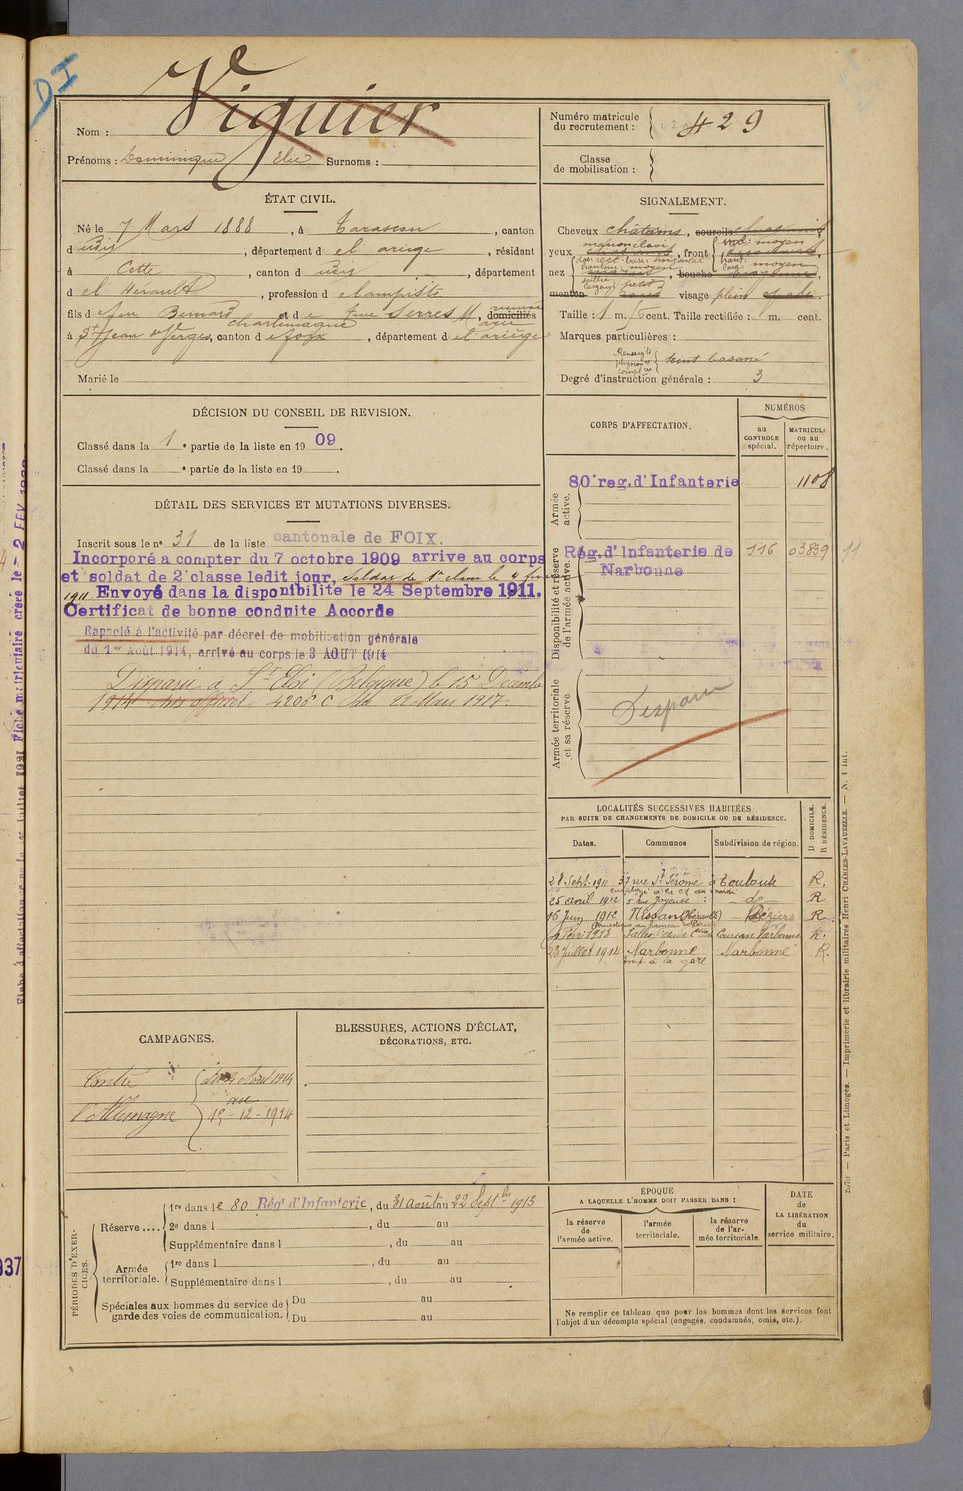 DI
Nom : Viguier
Prénoms : Dominique Elie Surnoms :
Numéro matricule du recrutement : 429
Classe de mobilisation :
ÉTAT CIVIL.
Né le 7 Mars 1888, à Tarascon, canton
d udit, département d el ariège, résidant
à Cette, canton d udit, département
d el Hérault, profession d elampiste
fils d efeu Bernard et d e feue Serres M, domiciliés
à St Jean de Verges, canton d e foix, département d el ariège
Marié le
SIGNALEMENT.
Cheveux châtains, sourcils
yeux marron clair, front moyen
nez, bouche
menton visage plein
Taille : 1 m. cent. Taille rectifiée : m. cent.
Marques particulières :
Degré d'instruction générale : 3
DÉCISION DU CONSEIL DE REVISION.
Classé dans la 1e partie de la liste en 1909.
Classé dans la e partie de la liste en 19 .
DÉTAIL DES SERVICES ET MUTATIONS DIVERSES.
Inscrit sous le n° 31 de la liste cantonale de FOIX.
Incorporé a compter du 7 octobre 1909 arrive au corps
et soldat de 2e classe ledit jour, soldat de 1e classe le 4
1911 Envoyé dans la disponibilite le 24 Septembre 1911.
Certificat de bonne conduite Accorde
Rappelé à l'activité par décret de mobilisation générale
du 1er Août 1914, arrivé au corps le 3 AOUT 1914
Disparu à St Eloi (Belgique) le 15 Décembre
1914 avis officiel 4206 C du Mars 1917.
CORPS D'AFFECTATION.
NUMÉROS
au CONTRÔLE spécial.
MATRICULE ou au répertoire.
Armée active.
80e reg. d'Infanterie 1108
Disponibilité et réserve de l'armée active.
Rég. d'Infanterie de Narbonne 116 03839 11
Armée territoriale et sa réserve
Disparu
LOCALITÉS SUCCESSIVES HABITÉES
PAR SUITE DE CHANGEMENTS DE DOMICILE OU DE RÉSIDENCE.
D DOMICILE. R RÉSIDENCE.
Dates. Communes Subdivision de région.
28 Sept. 1911 37 rue St Jérôme à Toulouse R.
employé à la Cie du midi
25 avril 1912 5 rue Joyeuse - do - R
16 Juin 1912 Nissan (Hérault) - Béziers R
Févr 1913 Salles d'Aude Coursan Narbonne R.
23 Juillet 1914 Narbonne Narbonne R.
emp. à la gare
CAMPAGNES.
Contre l'Allemagne
du août 1914
au
15-12-1914
BLESSURES, ACTIONS D'ÉCLAT,
DÉCORATIONS, ETC.
PÉRIODES D'EXERCICES.
Réserve .... 1re dans le 80 Régt d'Infanterie, du 31 août au 22 Septbre 1913
2e dans l , du au
Supplémentaire dans l , du au
Armée territoriale. 1re dans l , du au
Supplémentaire dans l , du au
Spéciales aux hommes du service de garde des voies de communication. Du au
Du au
ÉPOQUE
A LAQUELLE L'HOMME DOIT PASSER DANS :
la réserve de l'armée active.
l'armée territoriale.
la réserve de l'armée territoriale.
DATE de LA LIBÉRATION du service militaire.
Ne remplir ce tableau que pour les hommes dont les services font
l'objet d'un décompte spécial (engagés, condamnés, omis, etc.).
2670 — Paris et Limoges. — Imprimerie et librairie militaires Henri CHARLES-LAVAUZELLE. — N. 1 int.
937